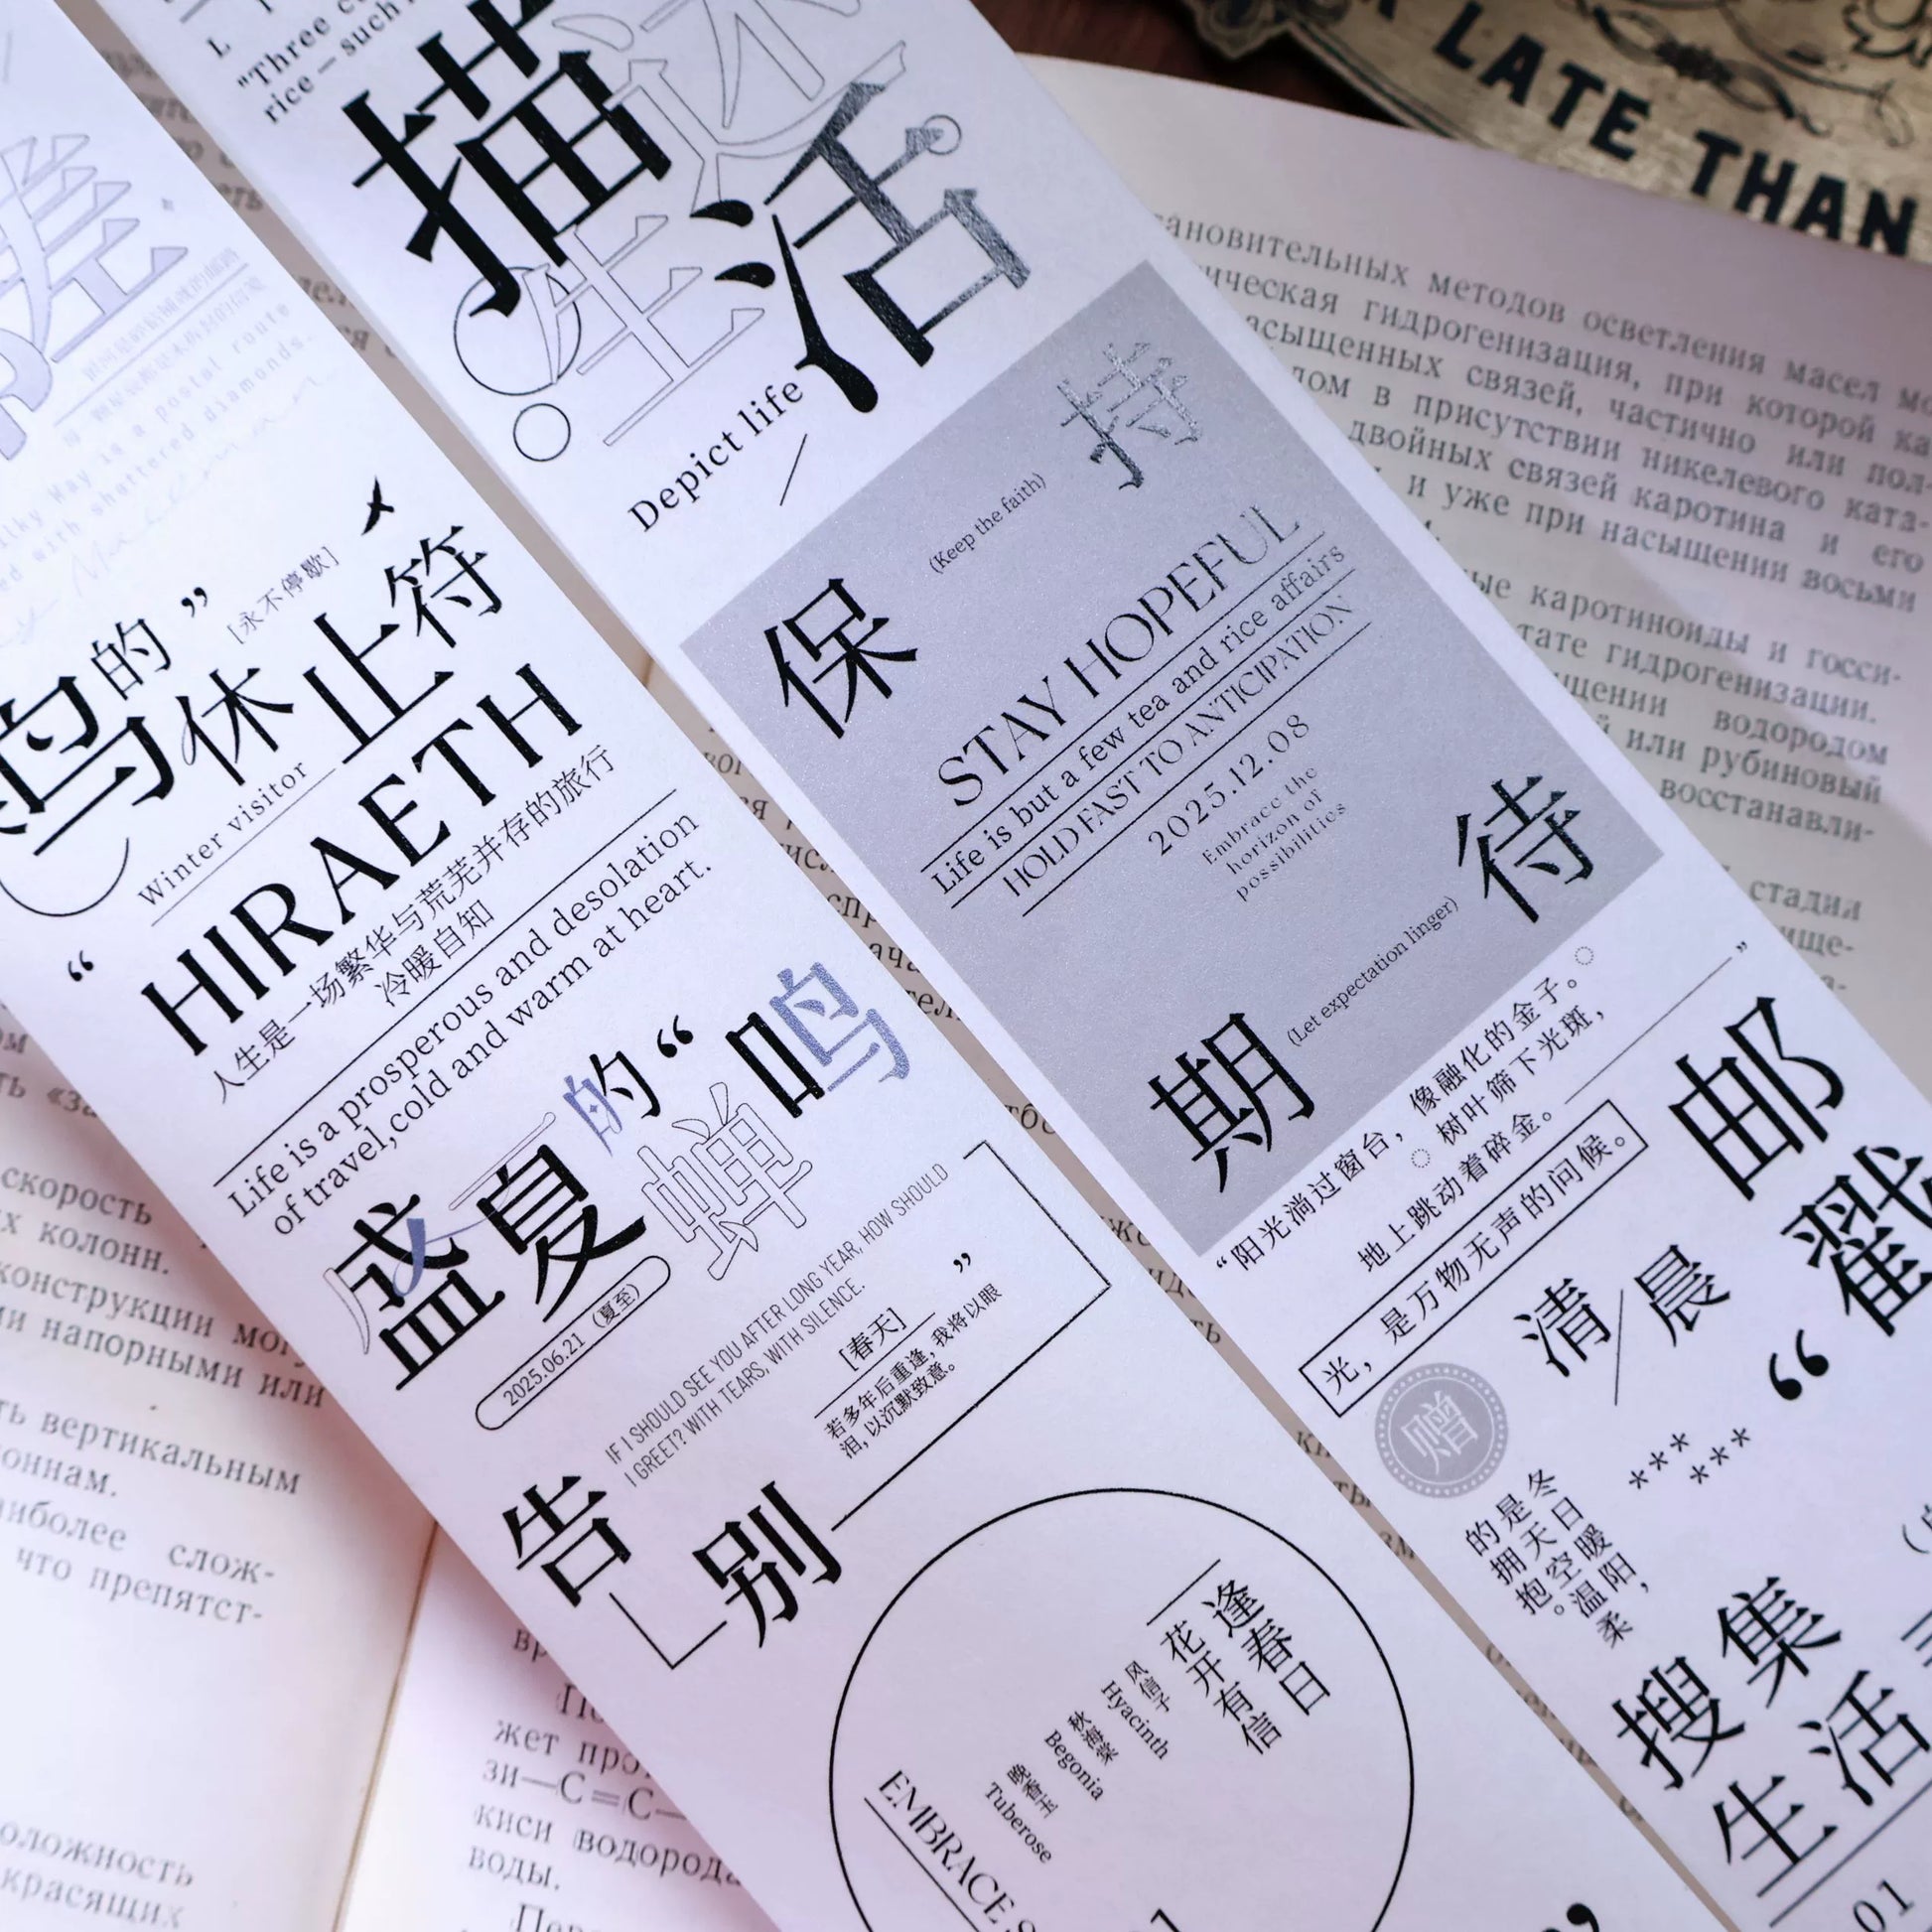 LATE THAN
"Three
rice – such
描述
生活
Depict life
保持
(Keep the faith)
STAY HOPEFUL
Life is but a few tea and rice affairs
HOLD FAST TO ANTICIPATION
2025.12.08
Embrace the
horizon of
possibilities
期待
(Let expectation linger)
“阳光淌过窗台，像融化的金子。
树叶筛下光斑，
地上跳动着碎金。”
光，是万物无声的问候。
邮戳
“
清/晨
赠
*** ***
冬日暖阳，
是天空温柔
的拥抱。
搜集
生活
01
ilky Way is a postal route
ed with shattered diamonds.
鸟的”
[永不停歇]
休止符
Winter visitor
“
HIRAETH
人生是一场繁华与荒芜并存的旅行
冷暖自知
Life is a prosperous and desolation
of travel,cold and warm at heart.
盛夏的“
蝉鸣
”
2025.06.21（夏至）
IF I SHOULD SEE YOU AFTER LONG YEAR, HOW SHOULD
I GREET? WITH TEARS, WITH SILENCE.
[春天]
若多年后重逢，我将以眼
泪，以沉默致意。
告别
逢春日
花开有信
风信子
Hyacinth
秋海棠
Begonia
晚香玉
Tuberose
EMBRACE S
ановительных методов осветления масел
ическая гидрогенизация, при которой ка
асыщенных связей, частично или пол-
дом в присутствии никелевого ката-
двойных связей каротина и его
и уже при насыщении восьми
ые каротиноиды и госси-
тате гидрогенизации.
щении водородом
или рубиновый
восстанавли-
стадия
ище-
скорость
х колонн.
конструкции
ми напорными или
ть вертикальным
оннам.
аиболее слож-
что препятст-
оложность
красящих
жет
зи—С=С—
киси водорода
воды.